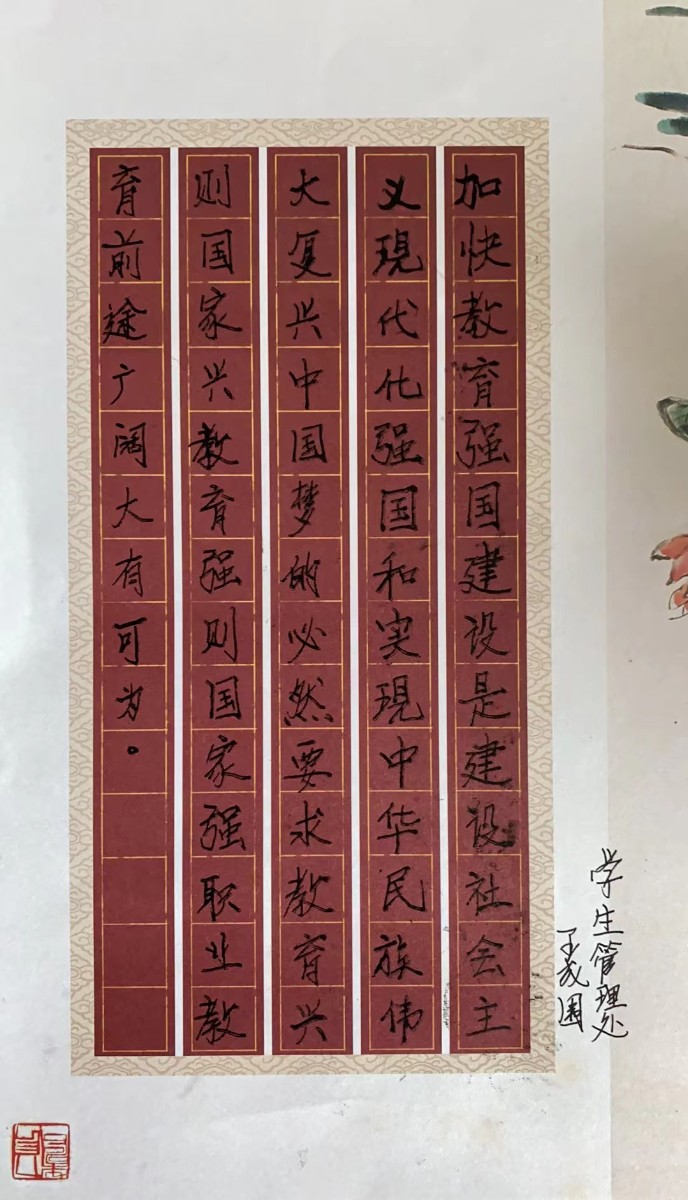 加快教育强国建设是建设社会主
义現代化强国和实現中华民族伟
大复兴中国梦的必然要求教育兴
则国家兴教育强则国家强职业教
育前途广阔大有可为。
学生管理处